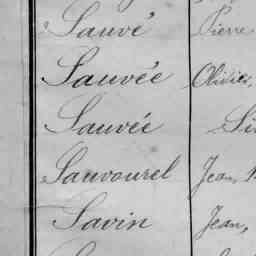 Sauvé Pierre
Sauvée Olivier,
Sauvée
Sauvourel Jean,
Savin Jean,